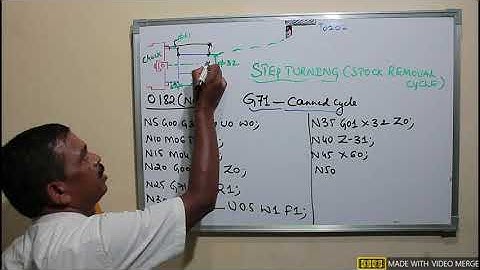 Chuck
T0202
STEP TURNING (STOCK REMOVAL CYCLE)
O 182
G71 — Canned cycle
N5 G00 U0 W0;
N10 M06
N15 M04
N20 G00 Z0;
N25 G71 R1;
N30 — U05 W1 F1;
N35 G01 X32 Z0;
N40 Z-31;
N45 X60;
N50
MADE WITH VIDEO MERGE